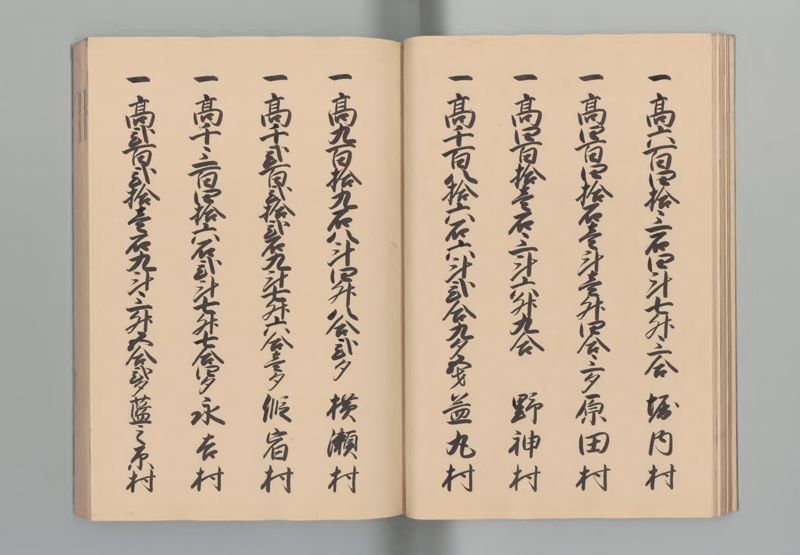 一高六百四拾三石四斗七升三合 堀内村
一高四百四拾石壱斗壱升四合三夕 原田村
一高四百拾壱石三斗六升九合 野神村
一高千百八拾六石六斗弐合九夕五才 益丸村
一高九百拾九石八斗四升八合弐夕 横瀬村
一高千弐百弐拾弐石九斗七升六合壱夕 仮宿村
一高千三百四拾六石弐斗七升七合四夕 永吉村
一高弐百弐拾壱石九斗三升五合弐夕 村